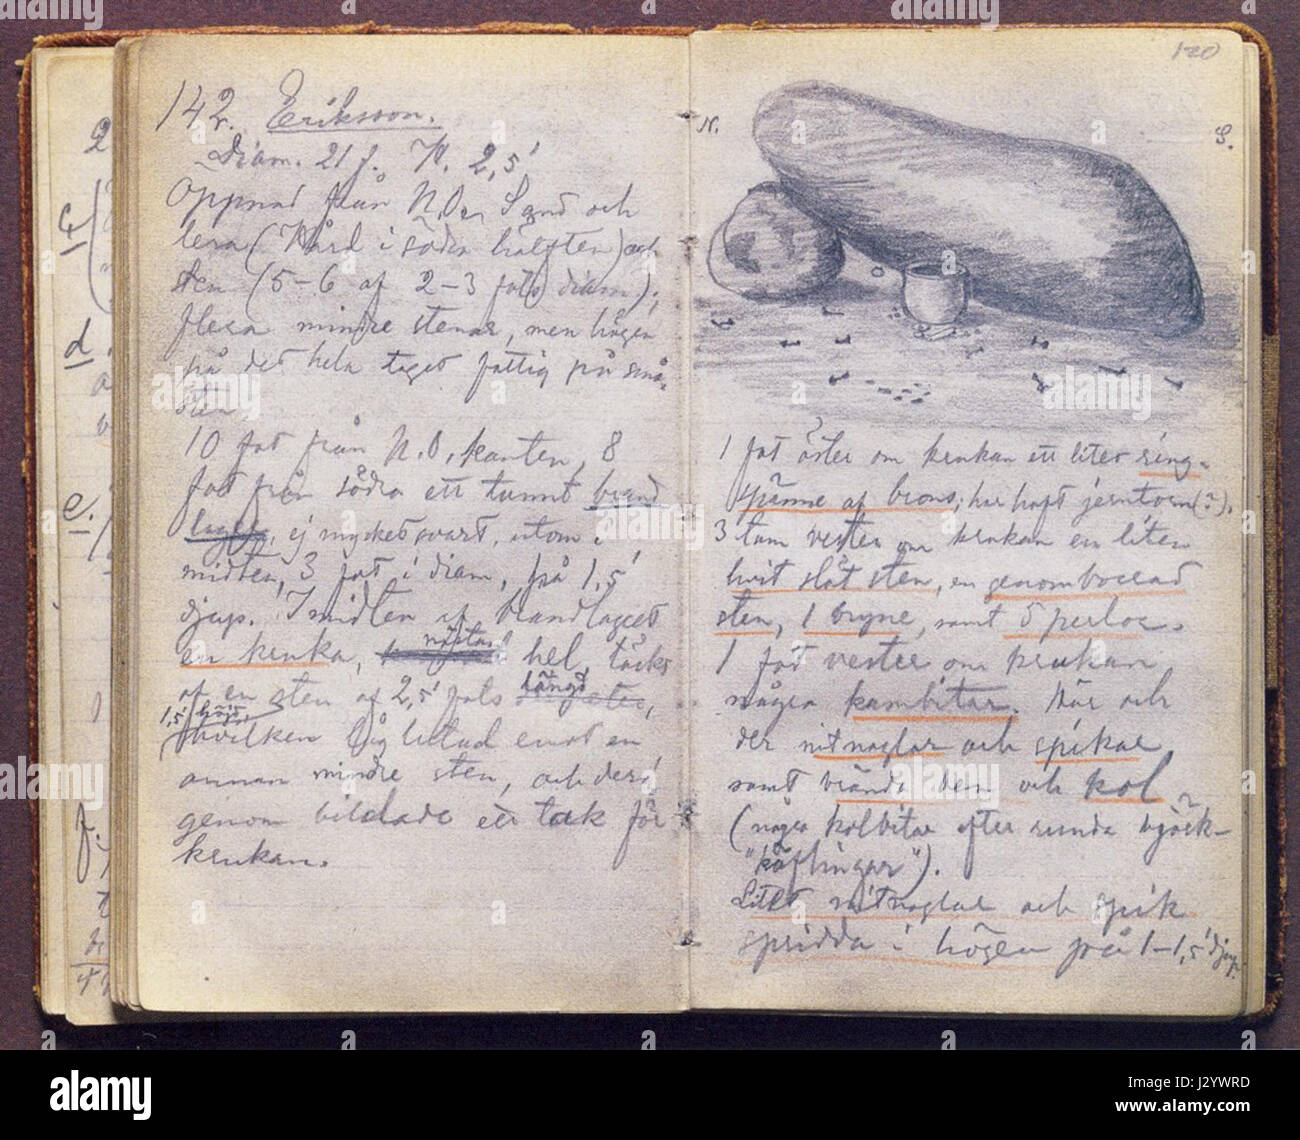 142. Eriksson.
Diam. 21 f. H. 2,5'
Öppnad från N.O. Sand och
lera (Hård i södra hälften) och
sten (5–6 af 2–3 fots diam);
flera mindre stenar, men högen
på det hela taget fattig på små-
sten.
10 fot från N.O. kanten, 8
fot från södra ett tunnt brand
lager, ej mycket svart, utom i
midten, 3 fot i diam, på 1,5'
djup. I midten af brandlagret
en kruka, nästan hel, täckt
af en sten af 2,5' fots längd
1,5' högd,
hvilken låg lutad emot en
annan mindre sten, och der-
igenom bildade ett tak för
krukan.
120
N. S.
1 fot öster om krukan ett litet ring-
spänne af brons; har haft jerntorn(?).
3 tum vester om krukan en liten
hvit slät sten, en genomborrad
sten, 1 bryne, samt 5 perlor.
1 fot vester om krukan
några kambitar. Här och
der nitnaglar och spikar
samt brända ben och kol
(några kolbitar efter runda björk-
"käflingar").
Litet nitnaglar och spik
spridda i högen på 1–1,5' djup.
2
c
d
e.
f.
a alamy
alamy
Image ID: J2YWRD
www.alamy.com